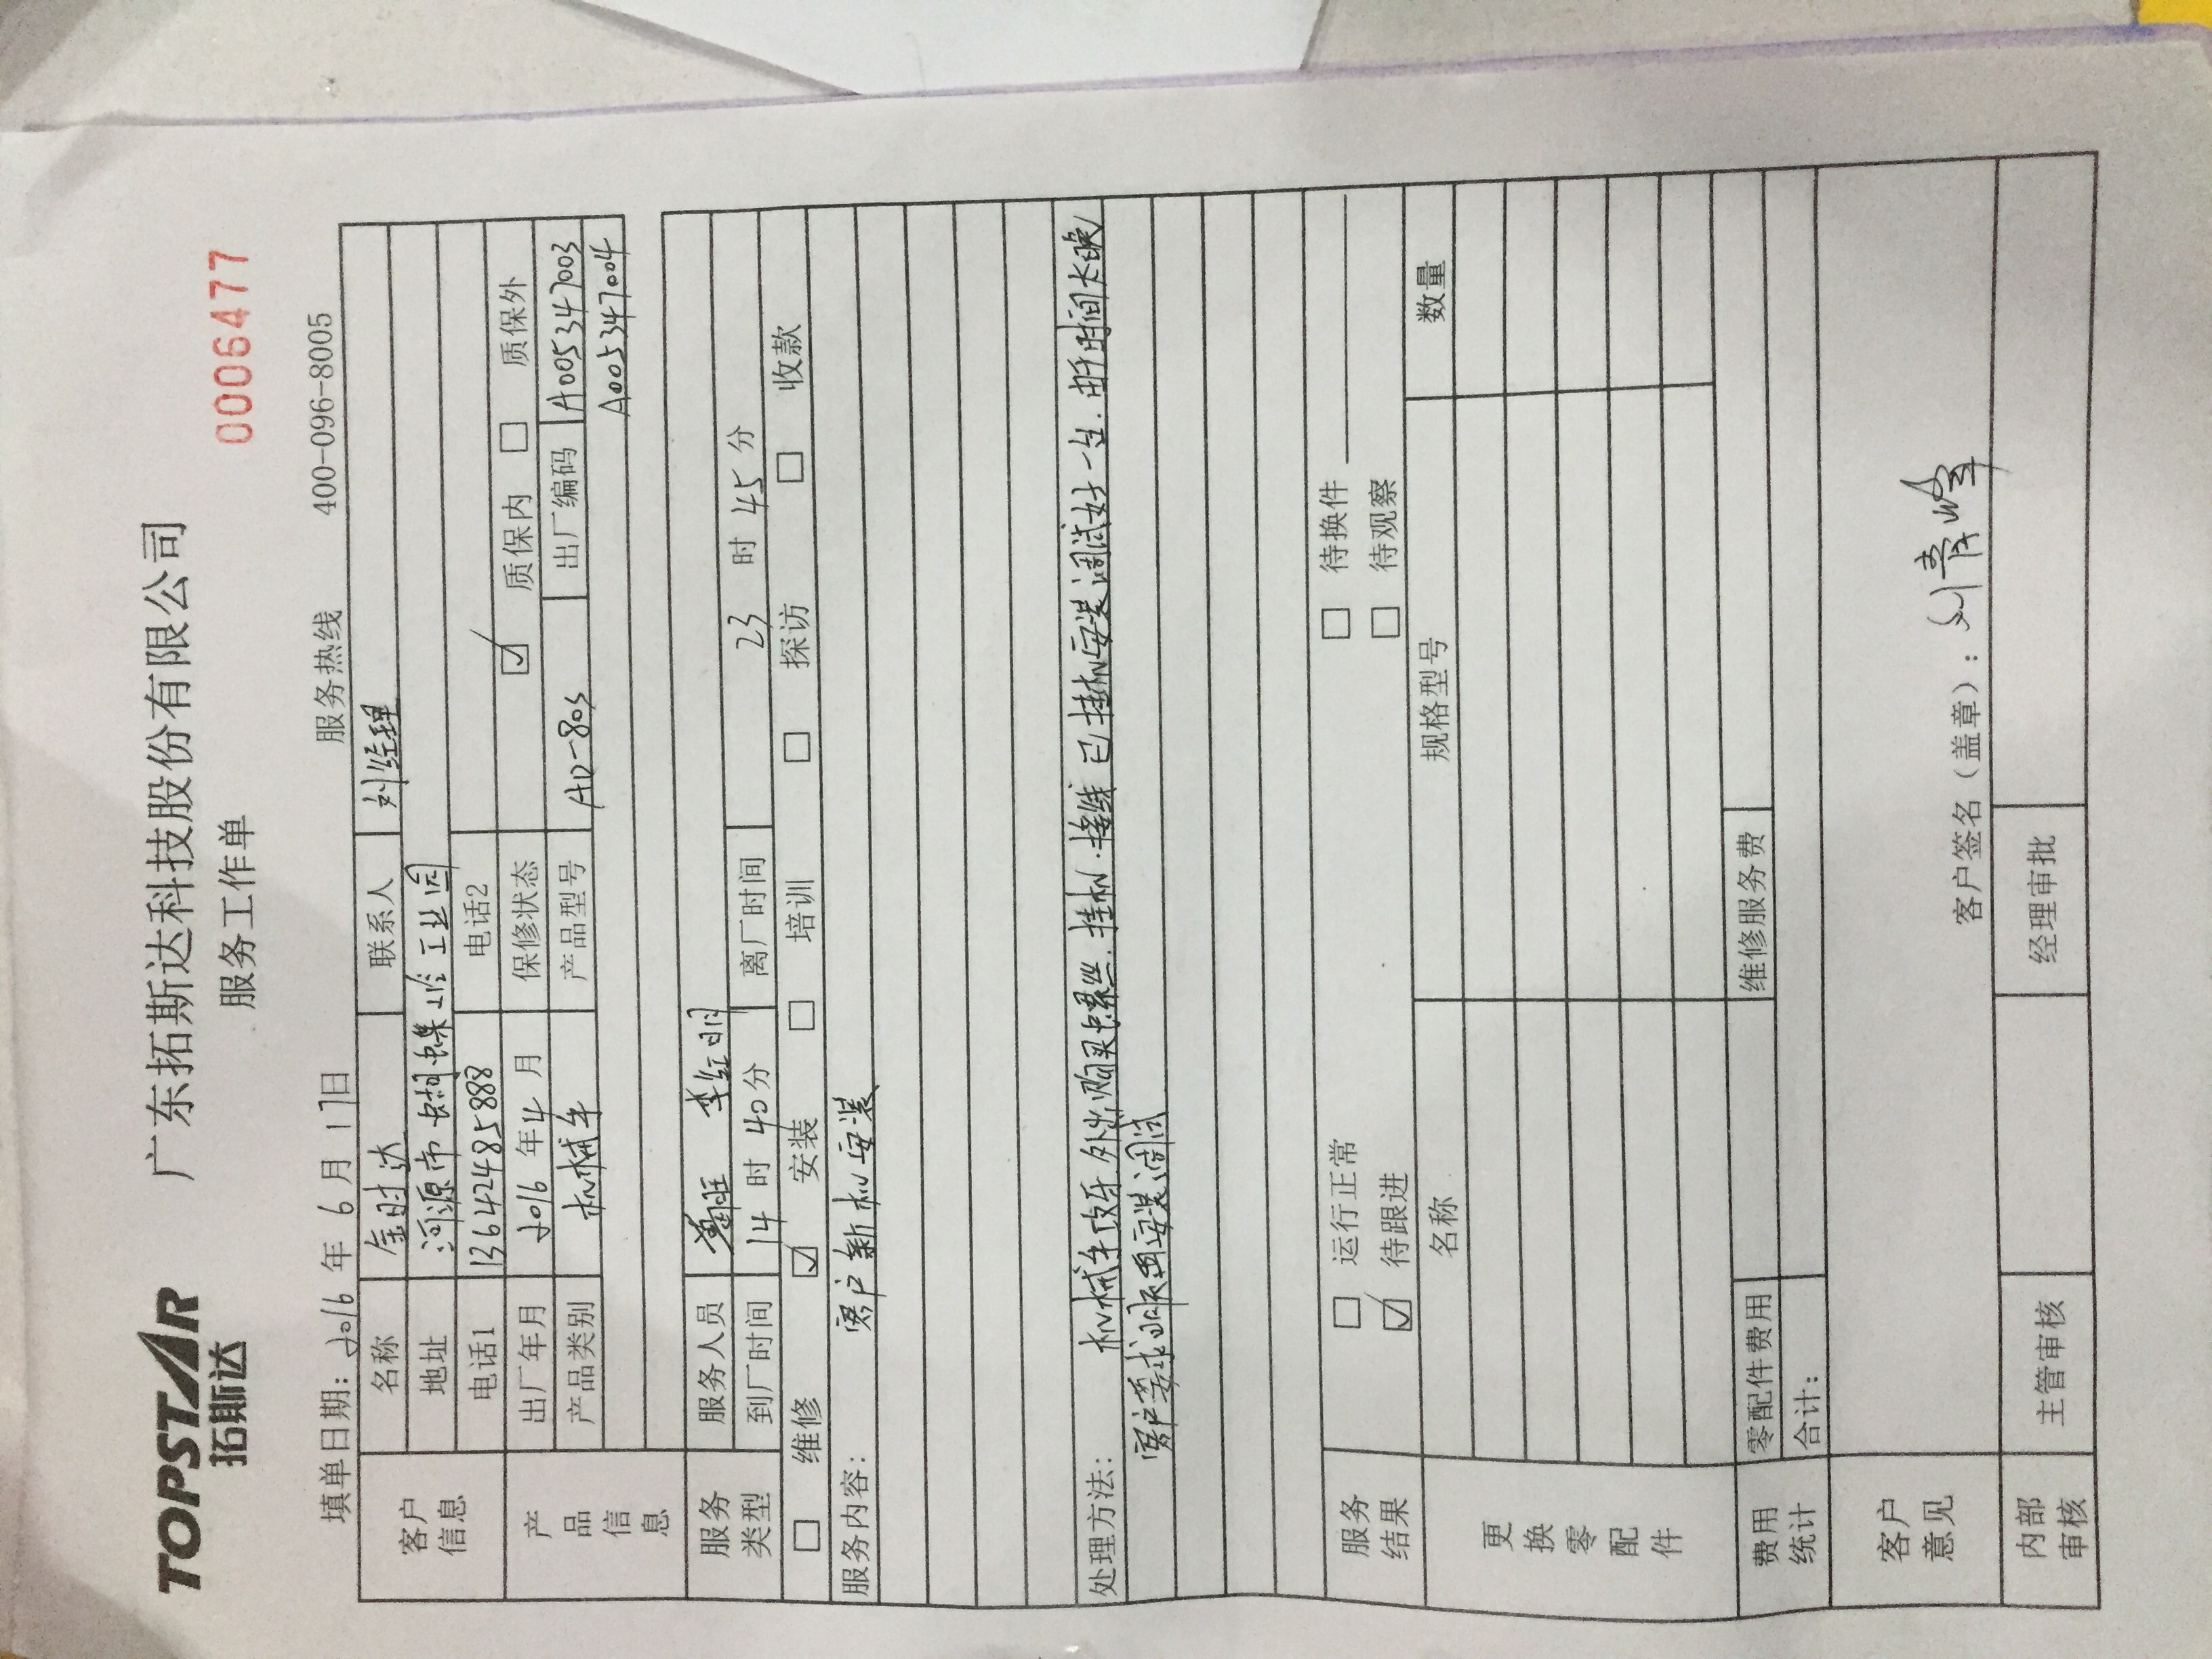 TOPSTAR 广东拓斯达科技股份有限公司
拓斯达 服务工作单 0006477
填单日期: 2016 年 6 月 17日 服务热线 400-096-8005
客户信息 名称 金时达 联系人 刘经理
地址 河源市蝴蝶岭工业园
电话1 13642485888 电话2
产品信息 出厂年月 2016 年 4 月 保修状态 ☑ 质保内 □ 质保外
产品类别 机械手 产品型号 AD-80S 出厂编码 A005347003
A005347004
服务类型 服务人员 李红明
到厂时间 14 时 40 分 离厂时间 23 时 45 分
□ 维修 ☑ 安装 □ 培训 □ 探访 □ 收款
服务内容: 客户新机安装
处理方法: 机械手攻牙外出购买螺丝.挂机.接线 已挂机安装调试好一台.由于时间太晚
客户要求明天再安装调试
服务结果 □ 运行正常 □ 待换件
☑ 待跟进 □ 待观察
更换零配件 名称 规格型号 数量
费用统计 零配件费用 维修服务费
合计:
客户意见 客户签名（盖章）: 刘青峰
内部审核 主管审核 经理审批